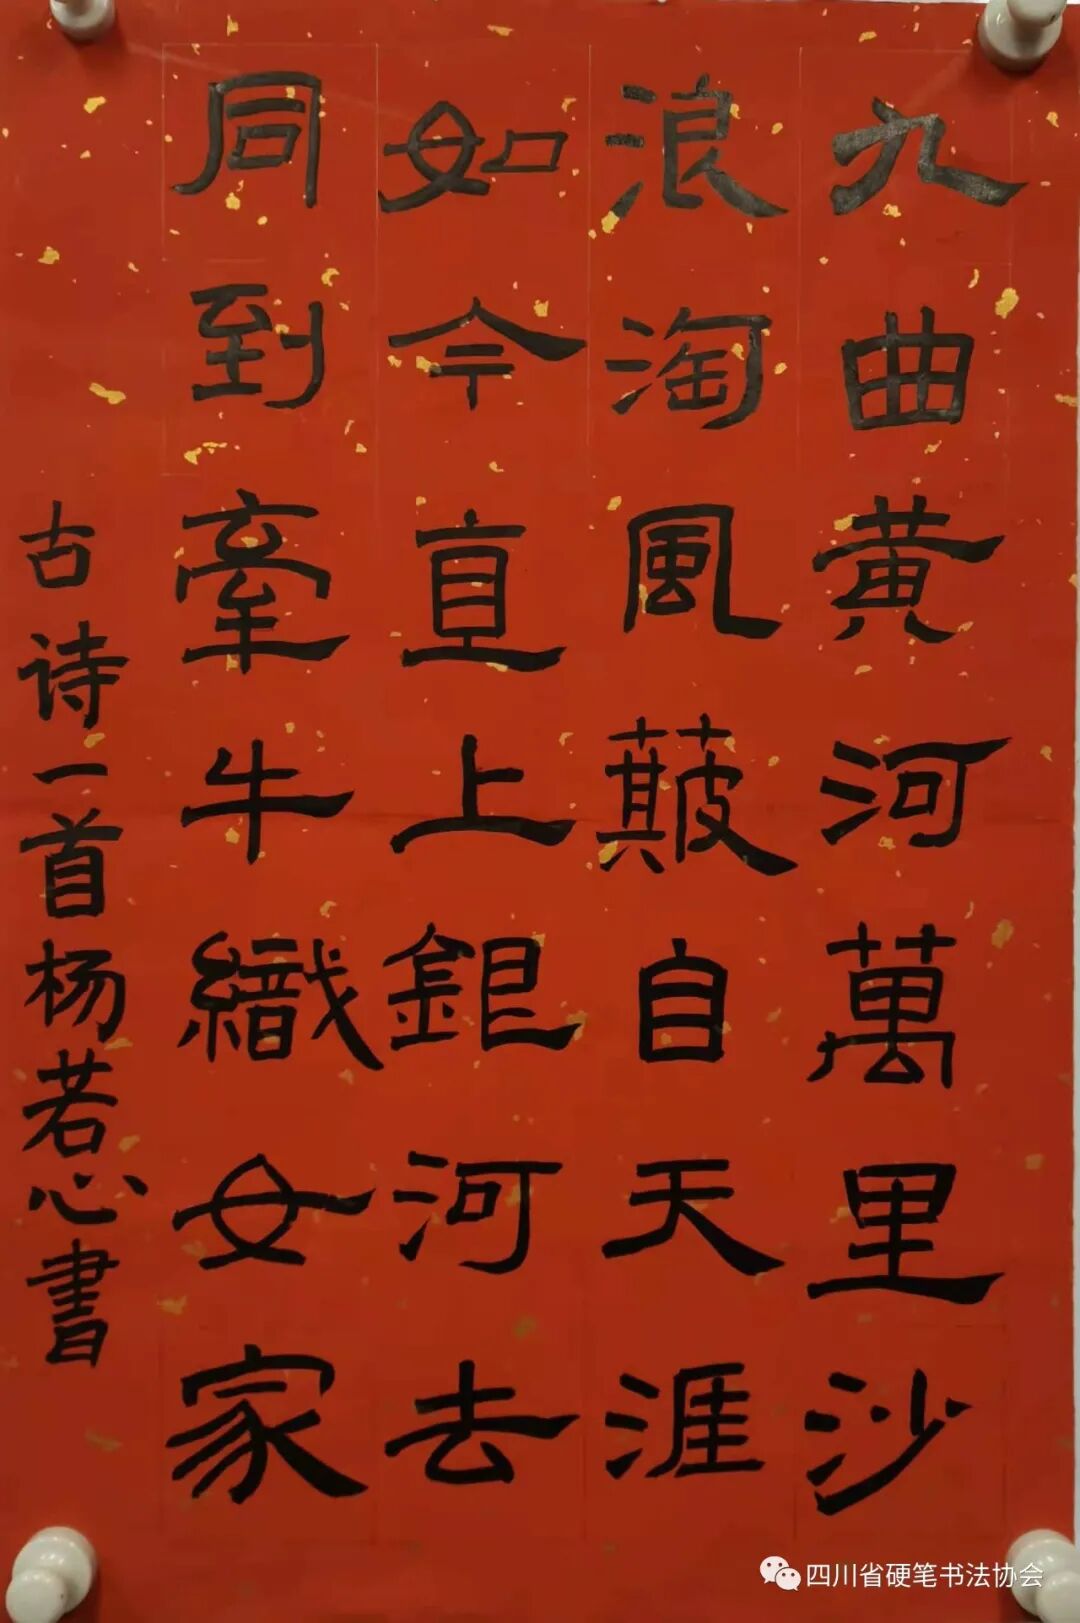 九曲黄河萬里沙
浪淘風簸自天涯
如今直上銀河去
同到牽牛織女家
古诗一首杨若心書
四川省硬笔书法协会